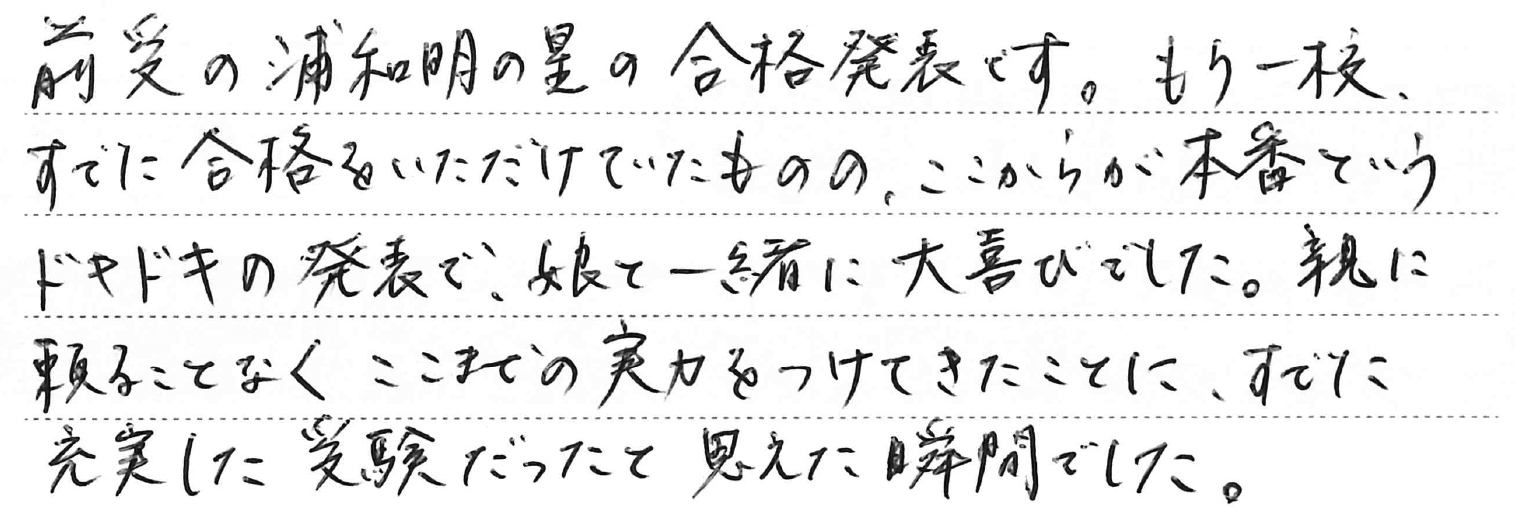 前受の浦和明の星の合格発表です。もう一校、
すでに合格をいただけていたものの、ここからが本番という
ドキドキの発表で、娘と一緒に大喜びでした。親に
頼ることなくここまでの実力をつけてきたことに、すでに
充実した受験だったと思えた瞬間でした。